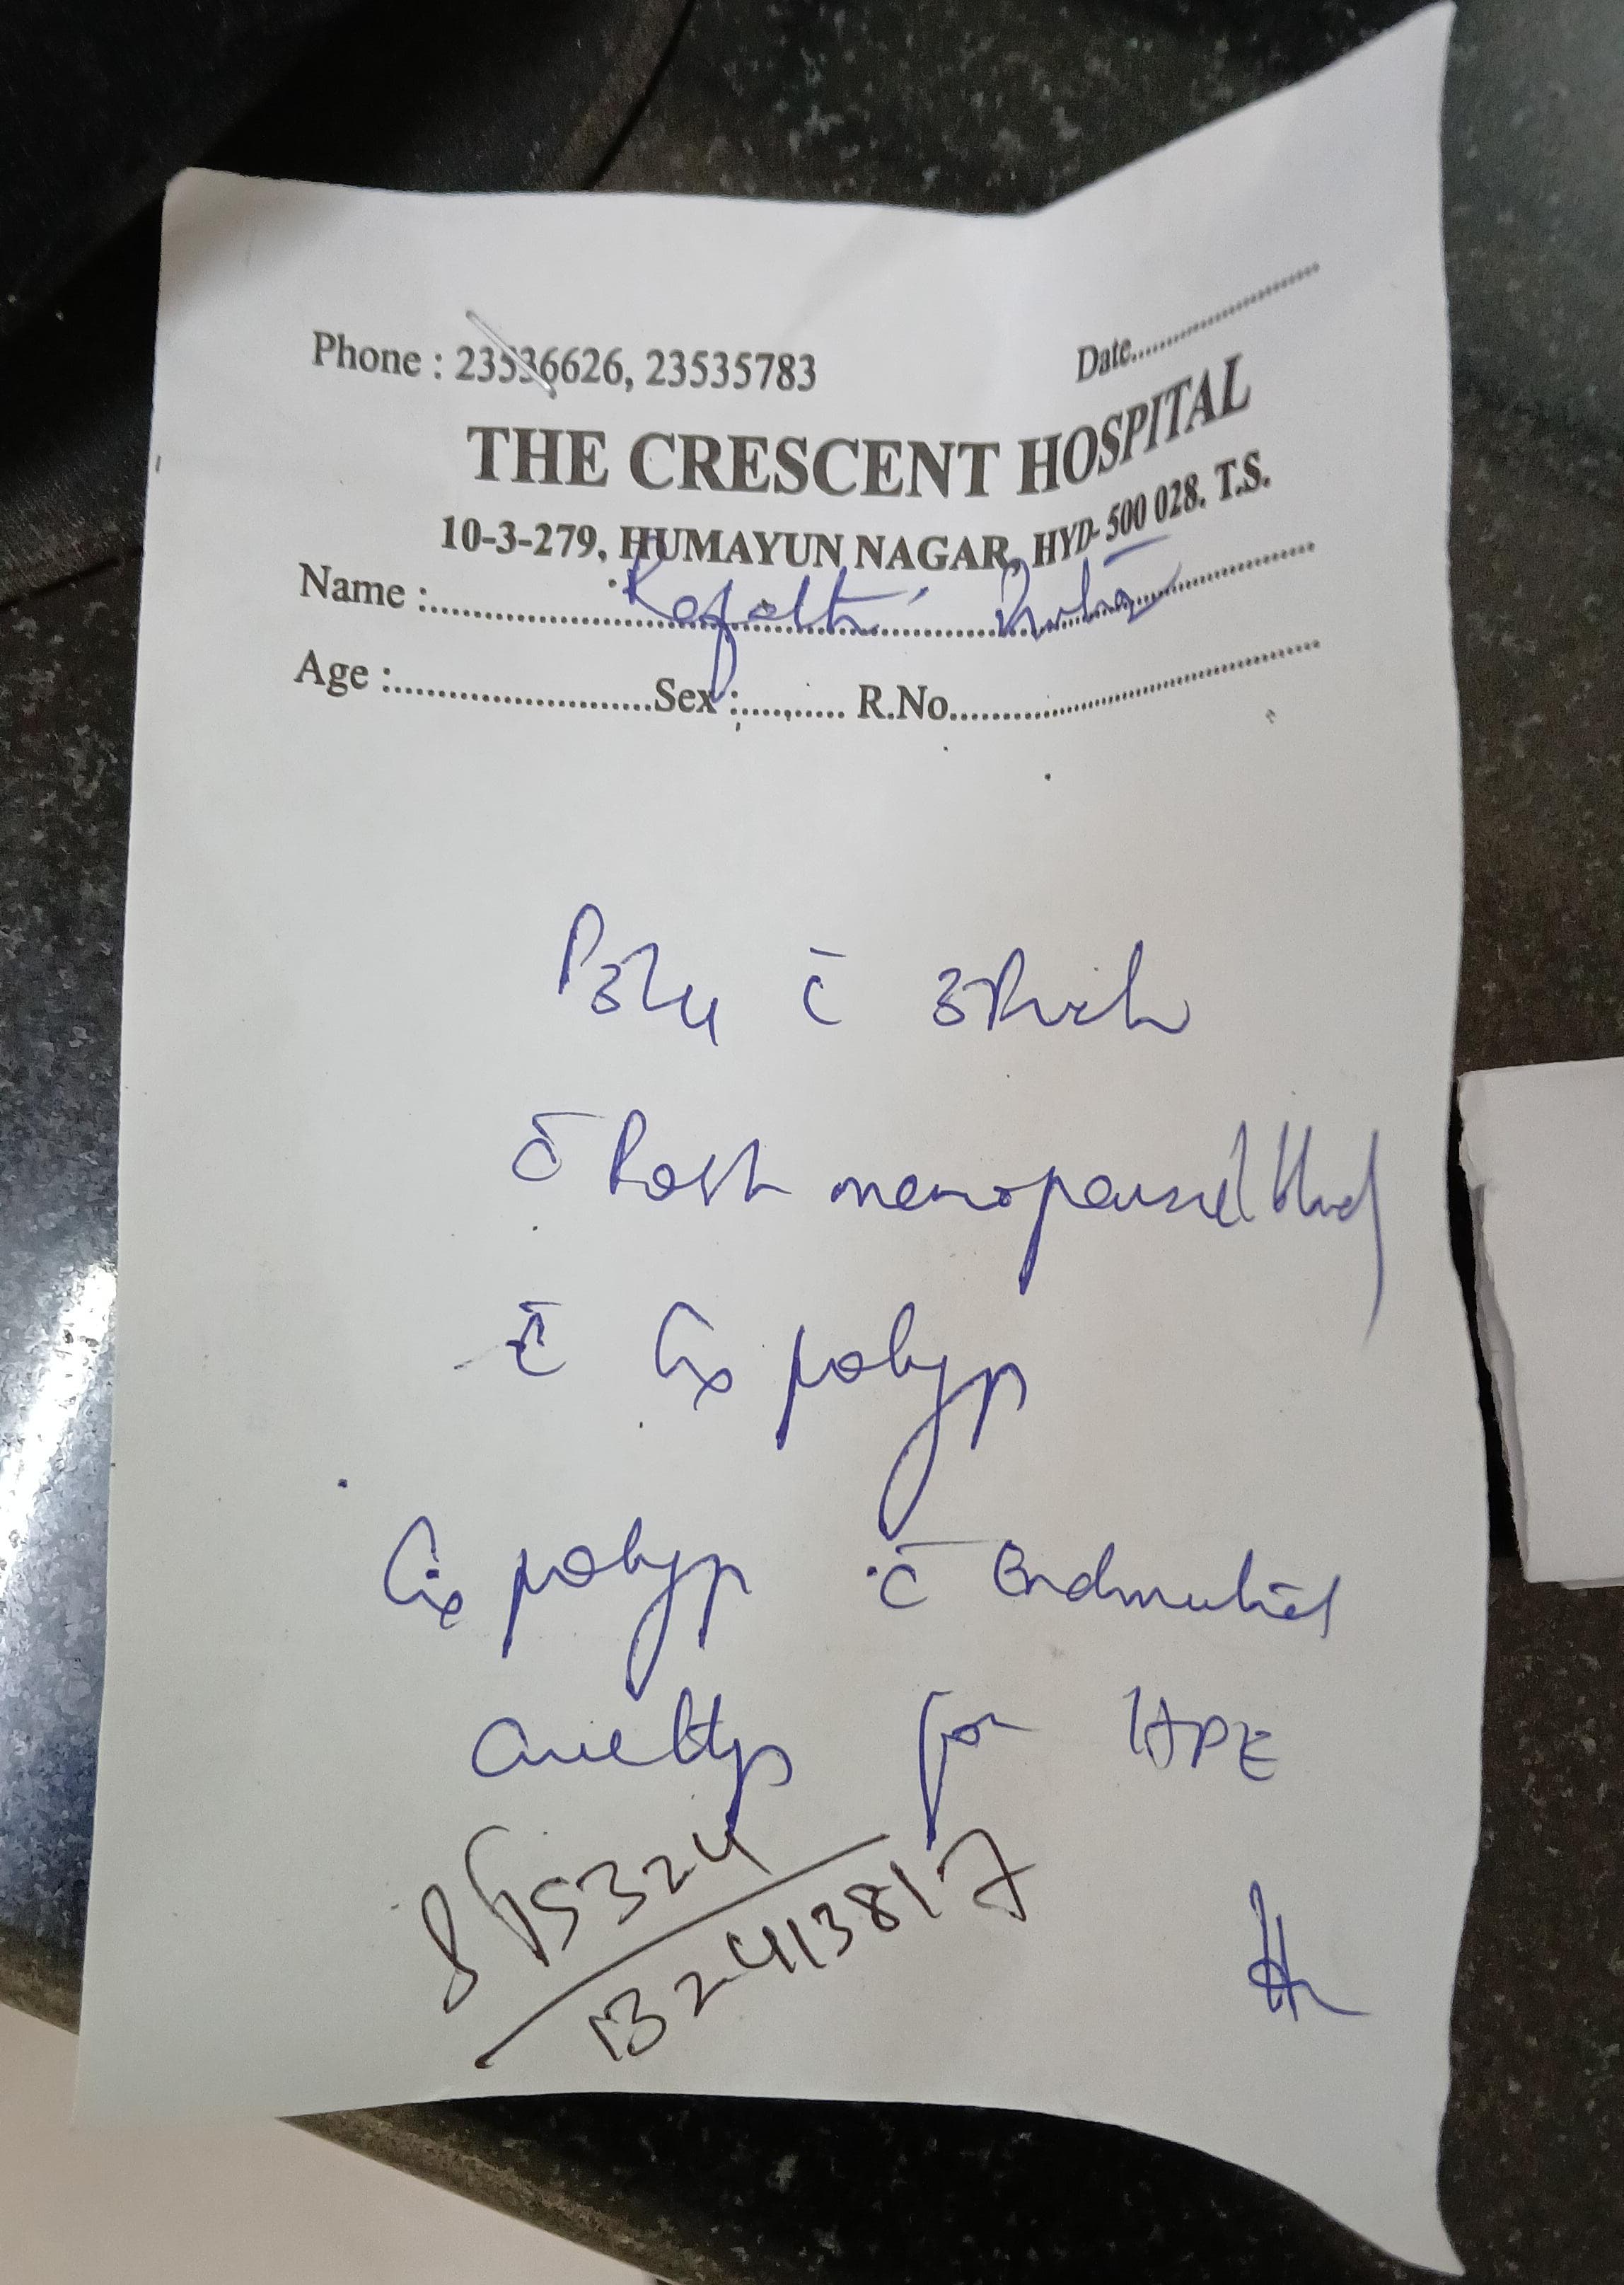 Phone : 23536626, 23535783
Date
THE CRESCENT HOSPITAL
10-3-279, HUMAYUN NAGAR, HYD- 500 028. T.S.
Name :
Age : Sex : R.No.
P3L4 c̄
c̄ Post menopausal
c̄ Cx polyp
Cx polyp c̄ Endometrial
for HPE
15324
132413817